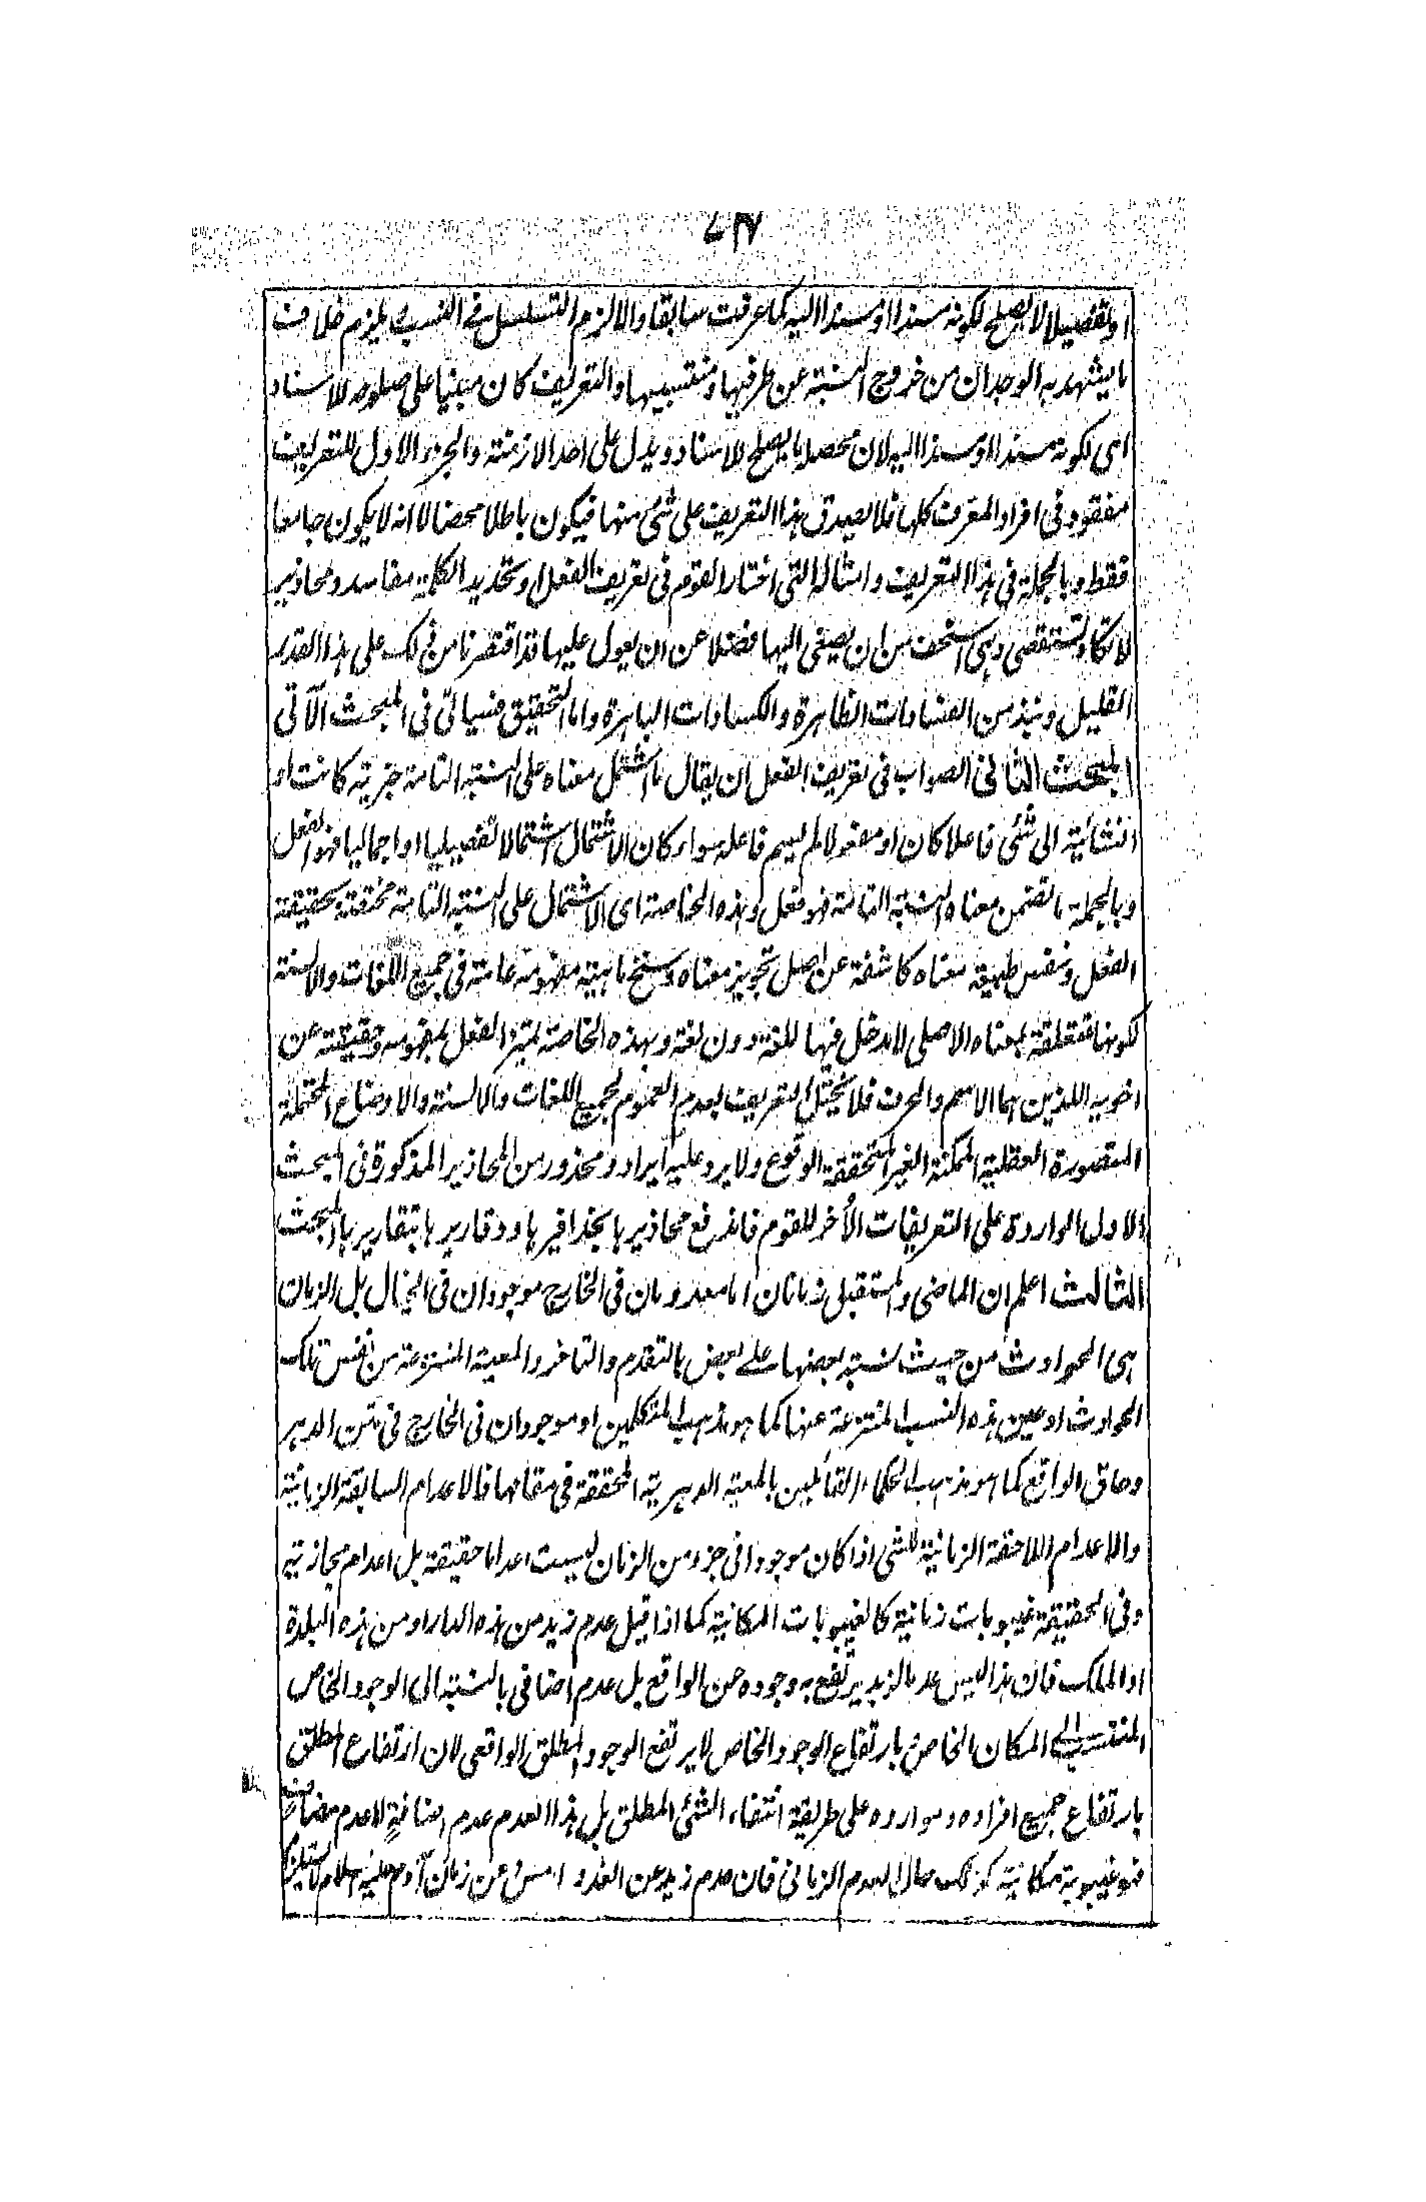 او تفصيلا لا يصلح لكونه مسندا او مسندا اليه كما عرفت سابقا والا لزم التسلسل في النسب يلزم خلاف
ما يشهد به الوجدان من خروج النسبة عن طرفيها ومنتسبيها والتعريف كان مبنيا على صلوحه للاسناد
اى لكونه مسندا او مسندا اليه لان محصله ما يصلح للاسناد ويدل على احد الازمنة والجزء الاول للتعريف
مفقود فى افراد المعرف كلها فلا يصدق هذا التعريف على شئ منها فيكون باطلا محضا لا انه لا يكون جامعا
فقط وبالجملة فى هذا التعريف وامثاله التى اختار القوم فى تعريف الفعل وتحديد الكلمة مفاسد ومحاذير
لا تكاد تستقصى وهى اسخف من ان يصغى اليها فضلا عن ان يعول عليها قد اقتصرنا من ذلك على هذا القدر
القليل ونبذ من الفسادات الظاهرة والكسادات الباهرة واما التحقيق فسياتى فى المبحث الآتى
المبحث الثانى الصواب فى تعريف الفعل ان يقال ما اشتمل معناه على النسبة التامة خبرية كانت او
انشائية الى شئ فاعلا كان او مفعولا لم يسم فاعله سواء كان الاشتمال اشتمالا تفصيليا او اجماليا فهو الفعل
وبالجملة ما تضمن معناه النسبة التامة فهو فعل وهذه الخاصة اى الاشتمال على النسبة التامة مختصة بحقيقة
الفعل ونفس طبيعة معناه كاشفة عن اصل تجويز معناه وسنخ ماهية مفهومه عامة فى جميع اللغات والالسنة
لكونها متعلقة بمعناه الاصلى لا دخل فيها للغة دون لغة وبهذه الخاصة تميز الفعل بمفهومه وحقيقته عن
اخويه اللذين هما الاسم والحرف فلا يختل التعريف بعدم العموم لجميع اللغات والالسنة والاوضاع المحتملة
المتصورة العقلية الممكنة الغير المتحققة الوقوع ولا يرد عليه ايراد ومحذور من المحاذير المذكورة فى المبحث
الاول الواردة على التعريفات الأخر للقوم فاندفع محاذيرها بحذافيرها وقاريرها بتقاريرها المبحث
الثالث اعلم ان الماضى والمستقبل زمانان اما معدومان فى الخارج موجودان فى الخيال بل الزمان
هى الحوادث من حيث نسبة بعضها على بعض بالتقدم والتاخر والمعية المنتزعة من نفس تلك
الحوادث او عين هذه النسب المنتزعة عنها كما هو مذهب المتكلمين او موجودان فى الخارج فى متن الدهر
وحاق الواقع كما هو مذهب الحكماء القائلين بالمعية الدهرية المحققة فى مقامها فالاعدام السابقة الزمانية
والاعدام اللاحقة الزمانية للشى اذا كان موجودا فى جزء من الزمان ليست اعداما حقيقة بل اعدام مجازية
وفى الحقيقة غيبوبات زمانية كالغيبوبات المكانية كما اذا قيل عدم زيد من هذه الدار او من هذه البلدة
او الملك فان هذا ليس عدما لزيد يرتفع به وجوده من الواقع بل عدم اضافى بالنسبة الى الوجود الخاص
المنتسب الى المكان الخاص بارتفاع الوجود الخاص لا يرتفع الوجود المطلق الواقعى لان ارتفاع المطلق
بارتفاع جميع افراده وموارده على طريقة انتفاء الشئ المطلق بل هذا العدم عدم اضافةٍ لا عدم مضافٍ
فهو غيبوبة مكانية كذلك حال العدم الزمانى فان عدم زيد عن الغد و امس وعن زمان آدم عليه السلام لا يستلزم